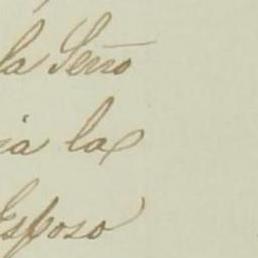 la Seño
ia la
Esposo